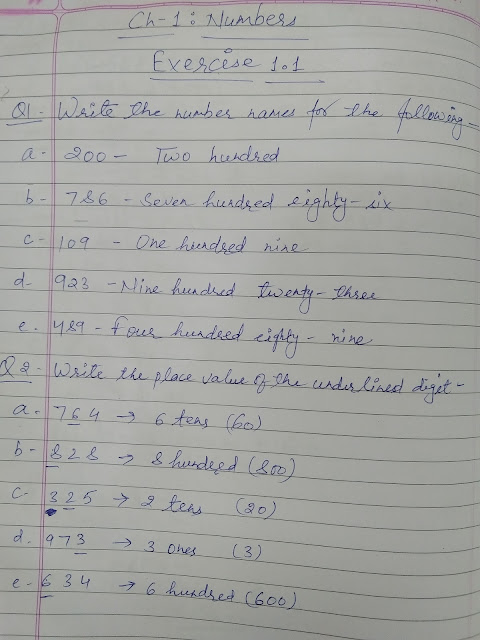 Ch-1: Numbers
Exercise 1.1
Q1- Write the number names for the following-
a- 200 - Two hundred
b- 786 - Seven hundred eighty-six
c- 109 - One hundred nine
d- 923 - Nine hundred twenty-three
e- 489 - Four hundred eighty-nine
Q2- Write the place value of the underlined digit-
a- 764 → 6 tens (60)
b- 828 → 8 hundred (800)
c- 325 → 2 tens (20)
d. 973 → 3 ones (3)
e- 634 → 6 hundred (600)